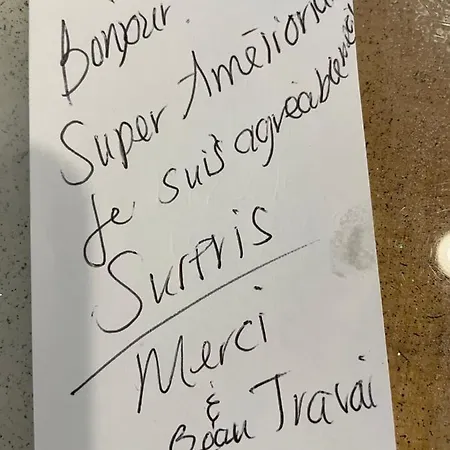 Bonjour.
Super Amélioration
Je suis agréablement
Surpris
Merci
&
Beau Travai